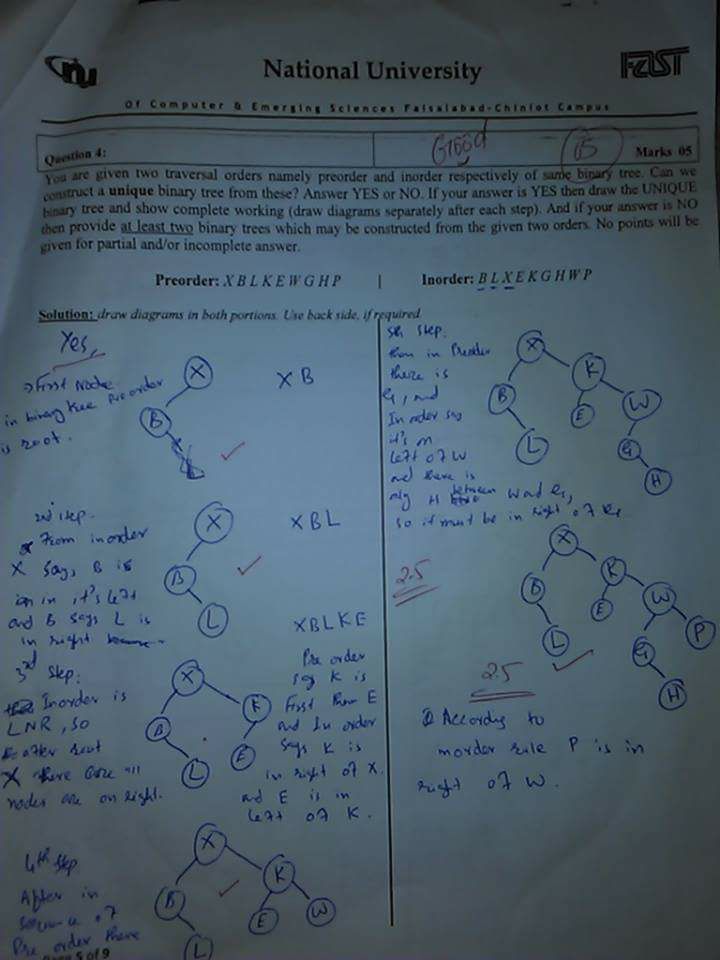 nu
National University
FAST
Of Computer & Emerging Sciences Faisalabad-Chiniot Campus
Question 4:
Good
05
Marks 05
You are given two traversal orders namely preorder and inorder respectively of same binary tree. Can we
construct a unique binary tree from these? Answer YES or NO. If your answer is YES then draw the UNIQUE
binary tree and show complete working (draw diagrams separately after each step). And if your answer is NO
then provide at least two binary trees which may be constructed from the given two orders. No points will be
given for partial and/or incomplete answer.
Preorder: X B L K E W G H P | Inorder: B L X E K G H W P
Solution: draw diagrams in both portions. Use back side, if required
Yes,
First Node
in binary tree Pre order
is root.
X B
X
B
2nd step.
From inorder
X says B is
in it's left
and B says L is
in right
X B L
X
B
L
3rd Step:
Inorder is
LNR, so
after root
X there are
nodes are on right.
X B L K E
X
B
L
K
E
Pre order
say K is
First then E
and In order
Says K is
in right of X.
and E is in
left of K.
4th Step
After in
of
Pre order there
X
B
K
L
E
W
Page 5 of 9
5th step.
then in Preorder
there is
G, and
In order say
it's on
left of W
and there is
only H between W and G,
so it must be in right of G.
X
B
K
L
E
W
G
H
2.5
X
B
K
L
E
W
G
P
H
2.5
According to
inorder rule P is in
right of W.